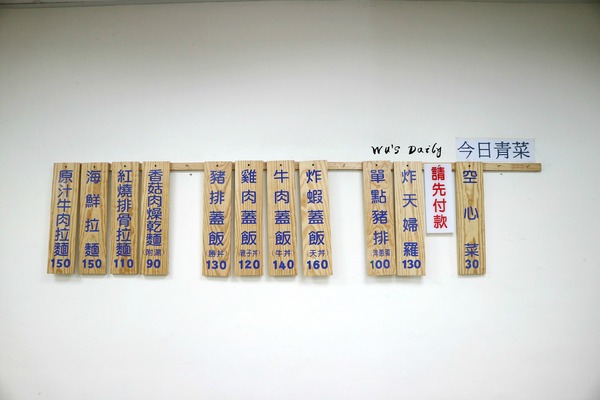 Wu's Daily
今日青菜
原汁牛肉拉麵
150
海鮮拉麵
150
紅燒排骨拉麵
110
香菇肉燥乾麵
(附湯)
90
豬排蓋飯
(勝丼)
130
雞肉蓋飯
(親子丼)
120
牛肉蓋飯
(牛丼)
140
炸蝦蓋飯
(天丼)
160
單點豬排
100
炸天婦羅
130
請先付款
空心菜
30